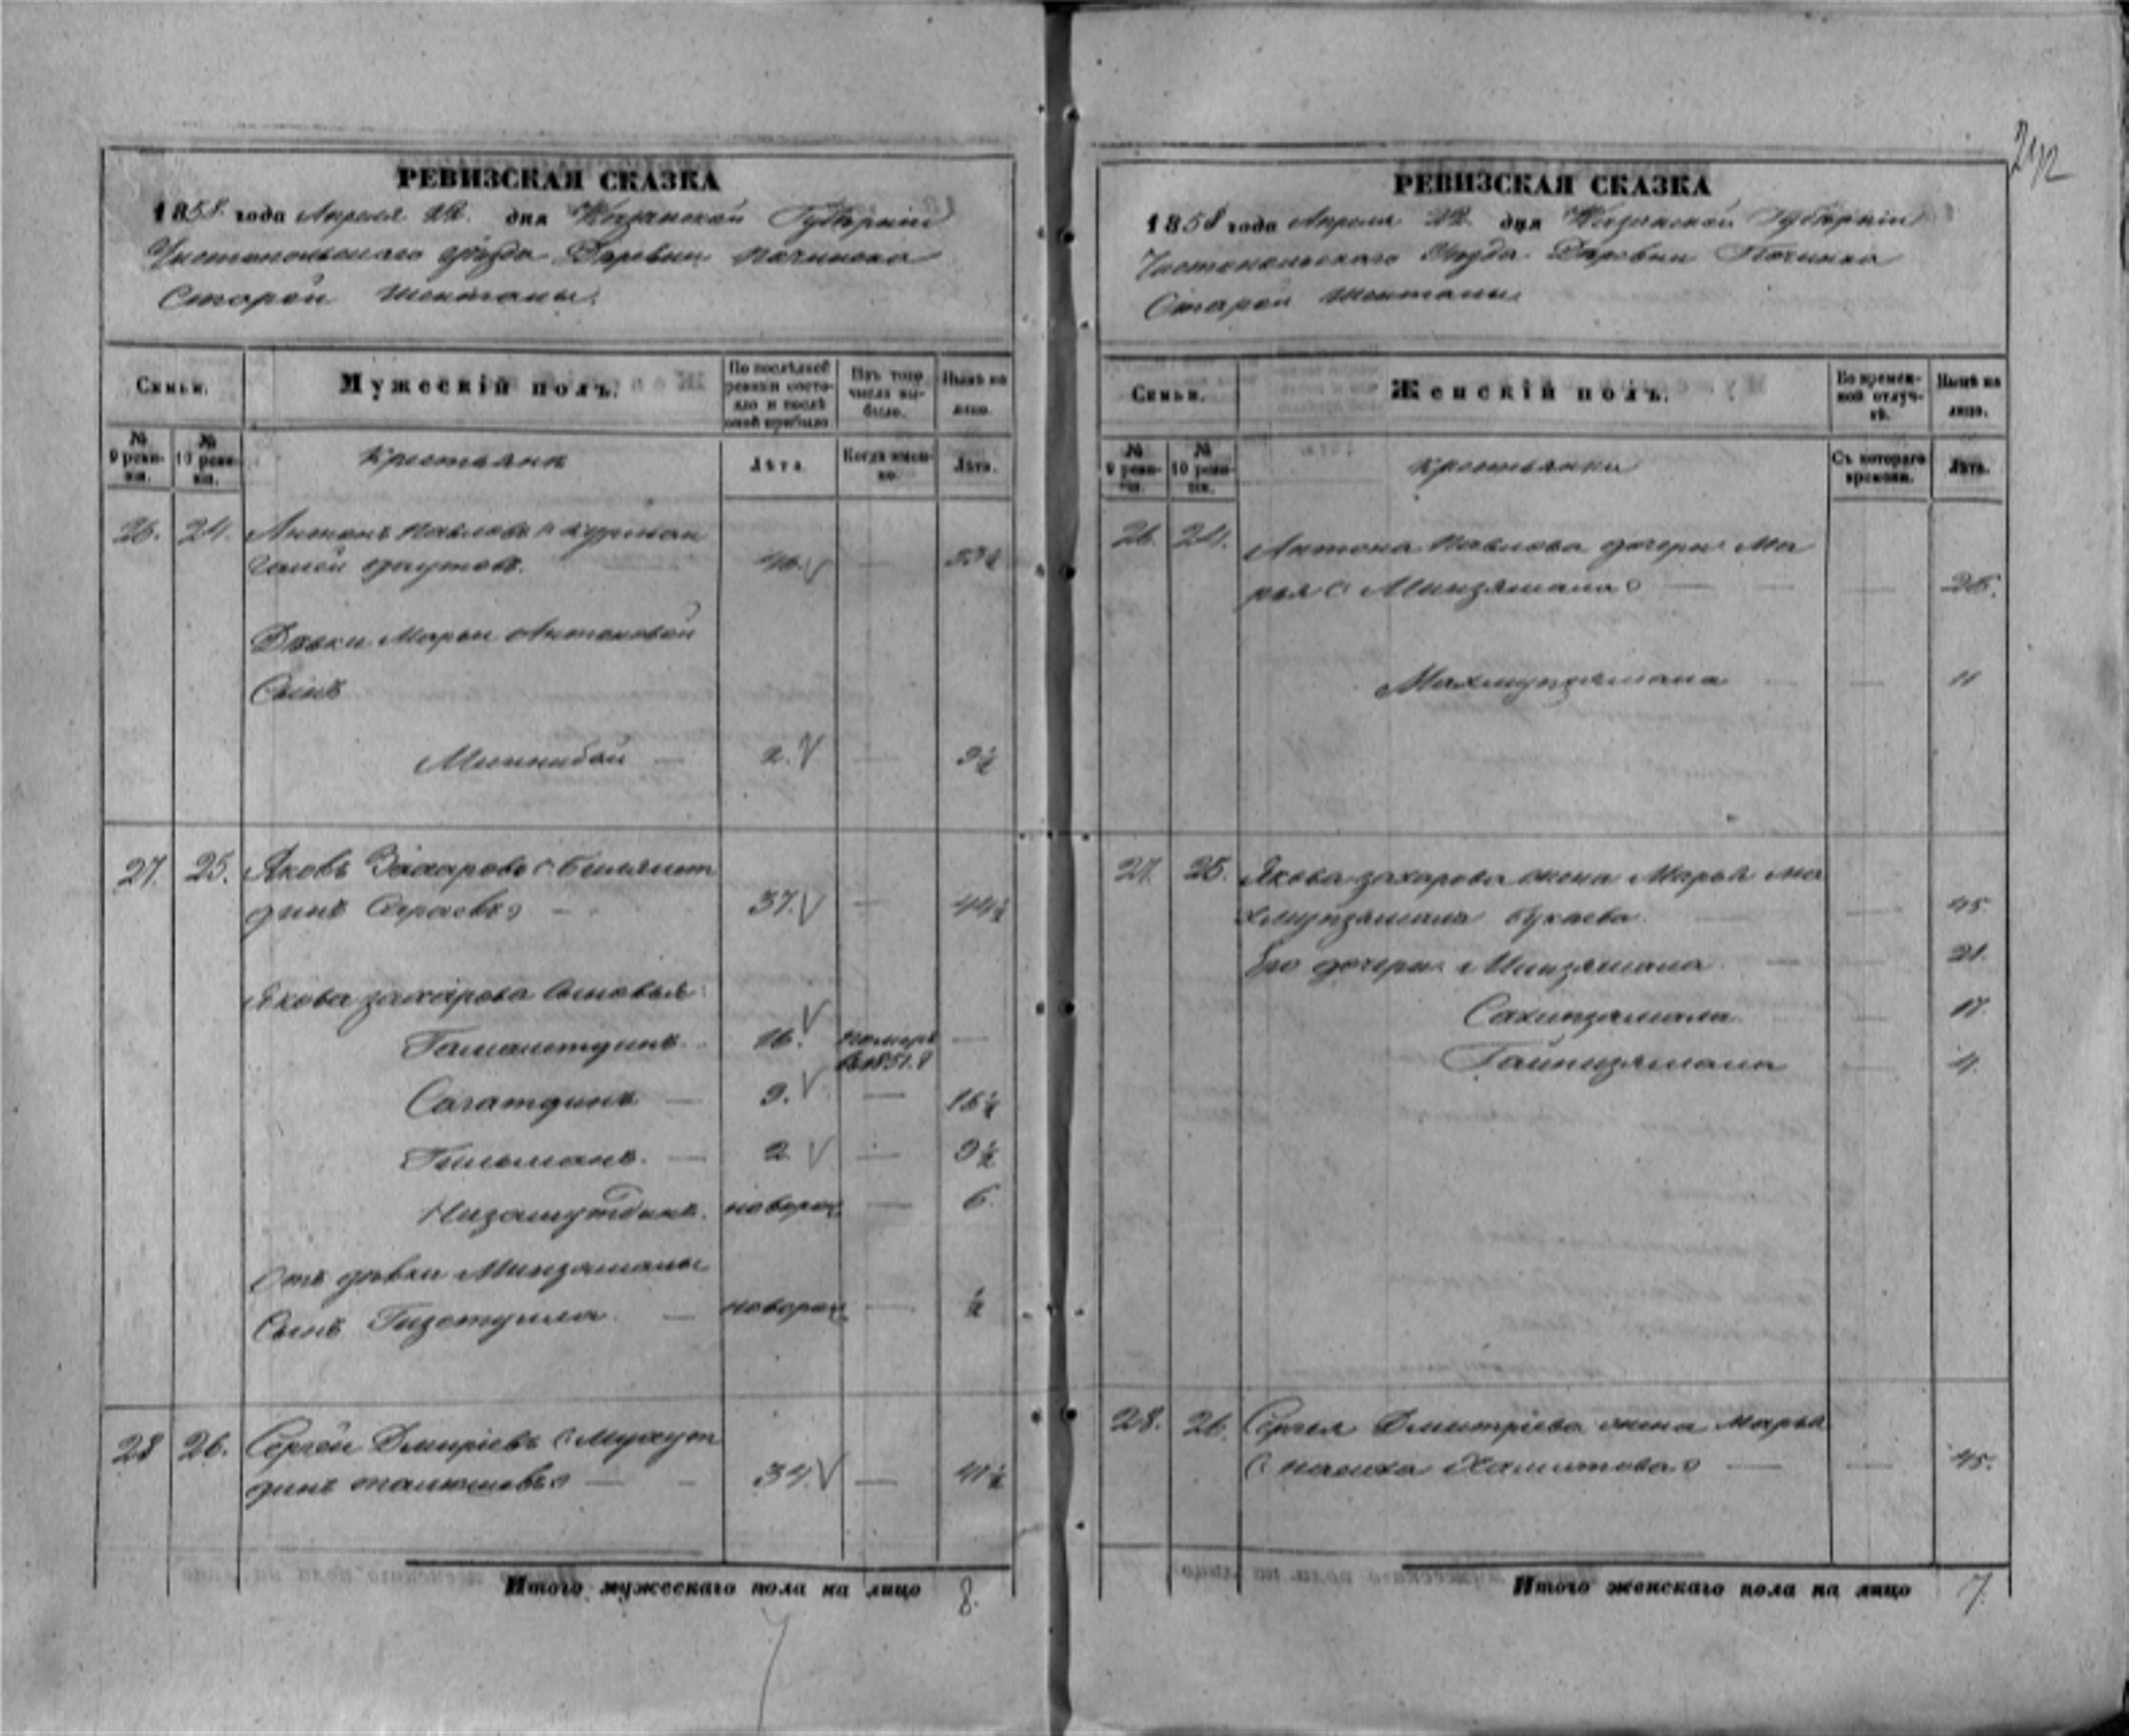 242
РЕВИЗСКАЯ СКАЗКА
1858 года Апреля 22 дня Казанской Губернiи
Чистопольскаго Уѣзда Деревни Починка
Старой Шентаны.
Семьи.
Мужескiй полъ.
По послѣдней ревизiи состояло и послѣ оной прибыло
Изъ того числа выбыло.
Нынѣ на лицо.
№ 9 ревизiи.
№ 10 ревизiи.
Крестьяне
Лѣта.
Когда именно.
Лѣта.
26. 24. Антонъ Павловъ (Курман
галей Даутовъ. — 46. — 53½
Дѣвки Марьи Антоновой
Сынъ
Миннибай — 2. — 9½
27. 25. Яковъ Захаровъ (Билялет
динъ Сираевъ) — 37. — 44½
Якова Захарова сыновья:
Гамалетдинъ. 16. померъ
въ 1851. г —
Сагатдинъ — 9. — 16½
Гильманъ. — 2 — 9½
Низамутдинъ. новорож. — 6.
Отъ дѣвки Минзямалы
Сынъ — новорож. — ½
28 26. Сергѣй Дмирiевъ (Мухут
динъ — 34. — 41½
Итого мужескаго пола на лицо 8.
РЕВИЗСКАЯ СКАЗКА
1858 года Апреля 22 дня Казанской Губернiи
Чистопольскаго Уѣзда Деревни Починка
Старой Шентаны
Семьи.
Женскiй полъ.
Во временной отлучкѣ.
Нынѣ на лицо.
№ 9 ревизiи.
№ 10 ревизiи.
Крестьянки
Съ котораго времени.
Лѣта.
26. 24. Антона Павлова дочери: Ма
рья (Минзямала) — 26.
Махмупзямала — 11
27. 25. Якова Захарова жена Марья Ма
хмупзямала Букаева. — 45.
Его дочери: Минзямала — 21.
Сахипзямала. — 17.
Гайнизямала — 4.
28. 26. Сергея Дмитрiева жена Марья
( Хамитова) — 45.
Итого женскаго пола на лицо 7.